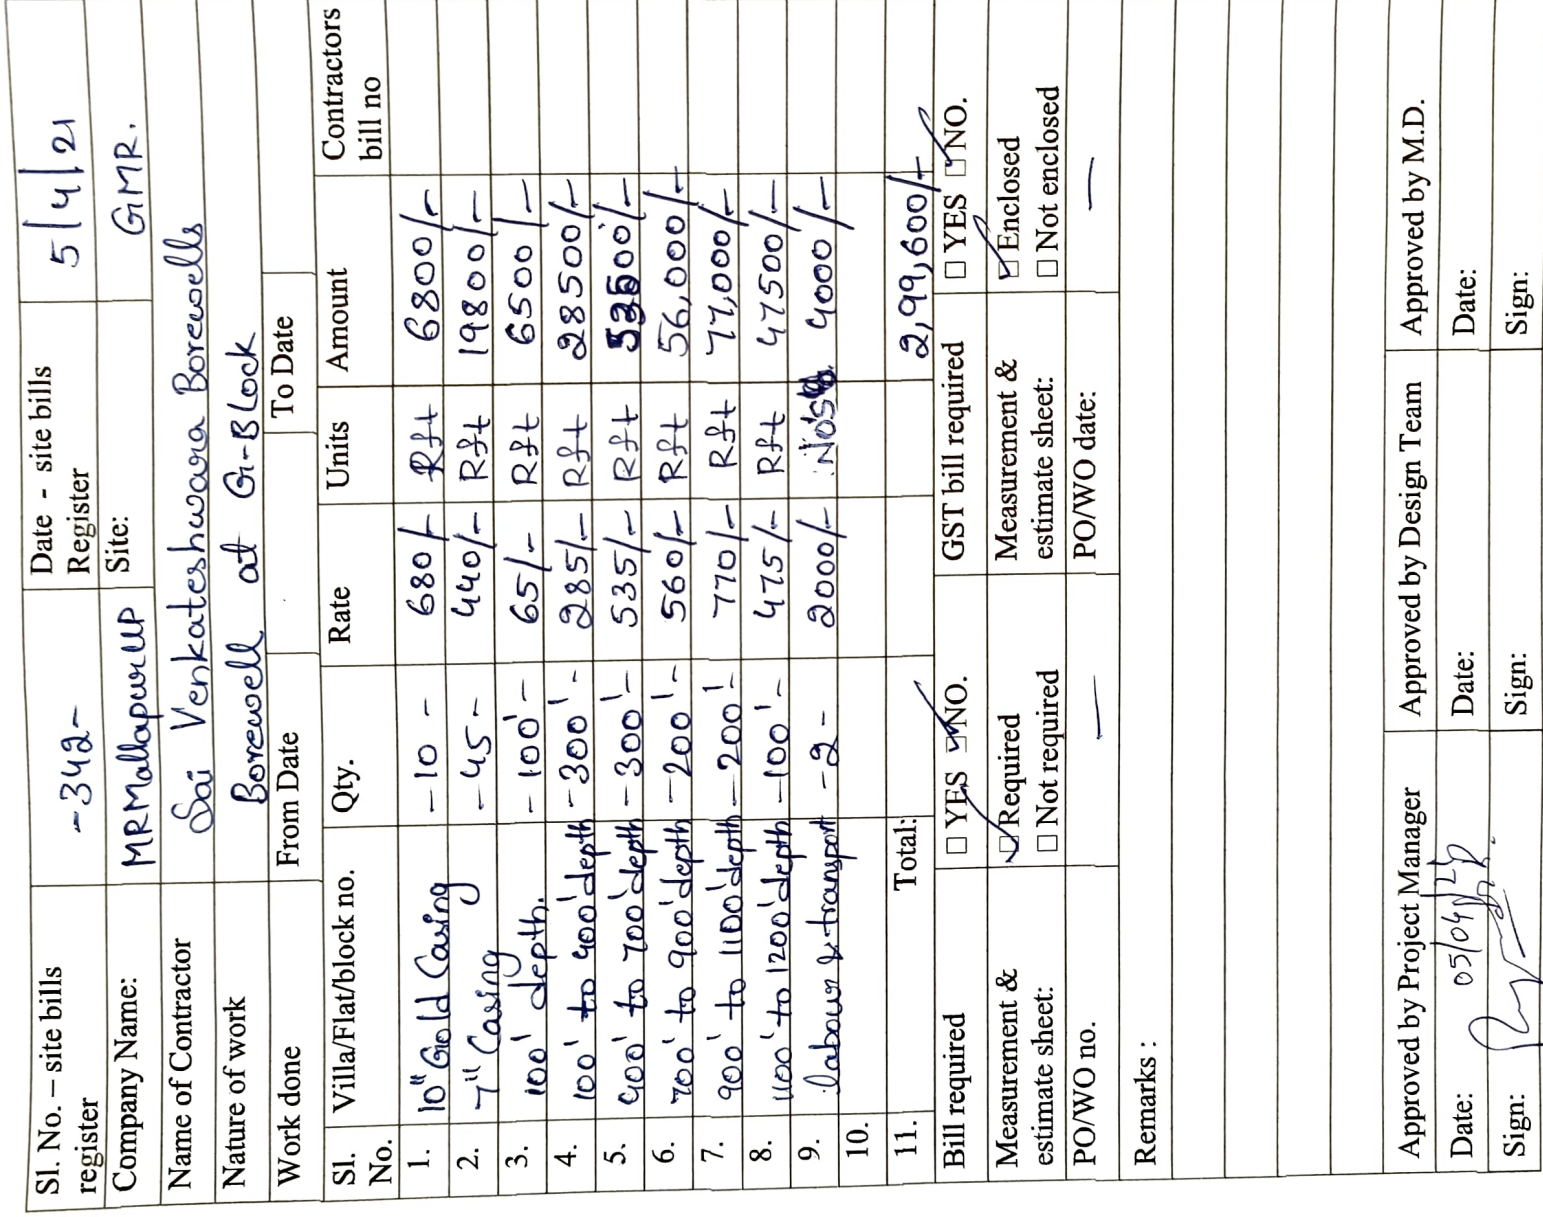 Sl. No. – site bills register -342- Date - site bills Register 5/4/21
Company Name: MRMallapurLLP Site: GMR.
Name of Contractor Sai Venkateshwara Borewells
Nature of work Borewell at G-Block
Work done From Date To Date
Sl. No. Villa/Flat/block no. Qty. Rate Units Amount Contractors bill no
1. 10" Gold Casing -10- 680/- Rft 6800/-
2. 7" Casing -45- 440/- Rft 19800/-
3. 100' depth. -100'- 65/- Rft 6500/-
4. 100' to 400' depth -300'- 285/- Rft 28500/-
5. 400' to 700' depth -300'- 535/- Rft 53500/-
6. 700' to 900' depth -200'- 560/- Rft 56,000/-
7. 900' to 1100' depth -200'- 770/- Rft 77,000/-
8. 1100' to 1200' depth -100'- 475/- Rft 47500/-
9. labour & transport -2- 2000/- Nos 4000/-
10.
11. Total: 2,99,600/-
Bill required □ YES ☑ NO. GST bill required □ YES ☑ NO.
Measurement & estimate sheet: ☑ Required □ Not required Measurement & estimate sheet: ☑ Enclosed □ Not enclosed
PO/WO no. — PO/WO date: —
Remarks :
Approved by Project Manager Approved by Design Team Approved by M.D.
Date: 05/04/21 Date: Date:
Sign: Sign: Sign: